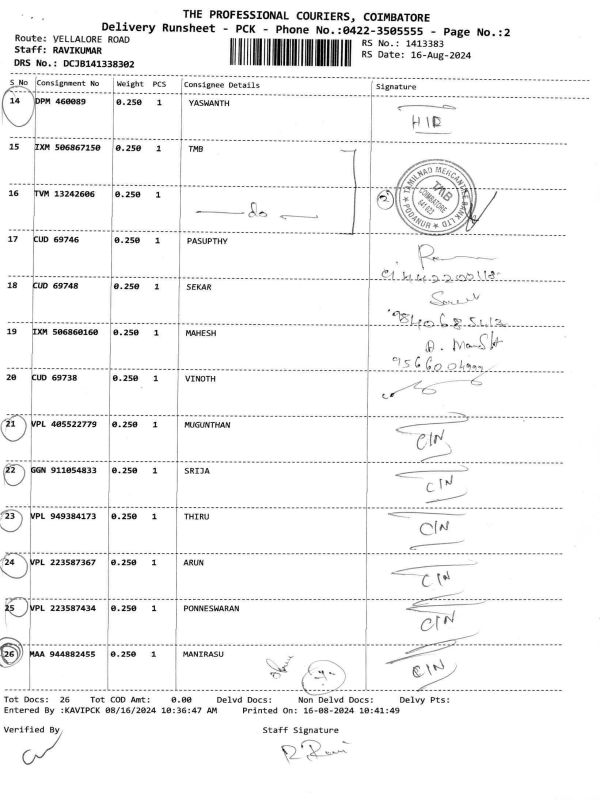 THE PROFESSIONAL COURIERS, COIMBATORE
Delivery Runsheet - PCK - Phone No.:0422-3505555 - Page No.:2
Route: VELLALORE ROAD
RS No.: 1413383
Staff: RAVIKUMAR
RS Date: 16-Aug-2024
DRS No.: DCJB141338302
S No Consignment No Weight PCS Consignee Details Signature
14 DPM 460089 0.250 1 YASWANTH
15 IXM 506867150 0.250 1 TMB
TAMILNAD MERCANTILE BANK LTD
TMB
COIMBATORE
641 023
PODANUR
16 TVM 13242606 0.250 1 do 2
17 CUD 69746 0.250 1 PASUPTHY
18 CUD 69748 0.250 1 SEKAR
19 IXM 506860160 0.250 1 MAHESH
20 CUD 69738 0.250 1 VINOTH
21 VPL 405522779 0.250 1 MUGUNTHAN CIN
22 GGN 911054833 0.250 1 SRIJA CIN
23 VPL 949384173 0.250 1 THIRU CIN
24 VPL 223587367 0.250 1 ARUN CIN
25 VPL 223587434 0.250 1 PONNESWARAN CIN
26 MAA 944882455 0.250 1 MANIRASU CIN
Tot Docs: 26 Tot COD Amt: 0.00 Delvd Docs: Non Delvd Docs: Delvy Pts:
Entered By :KAVIPCK 08/16/2024 10:36:47 AM Printed On: 16-08-2024 10:41:49
Verified By Staff Signature